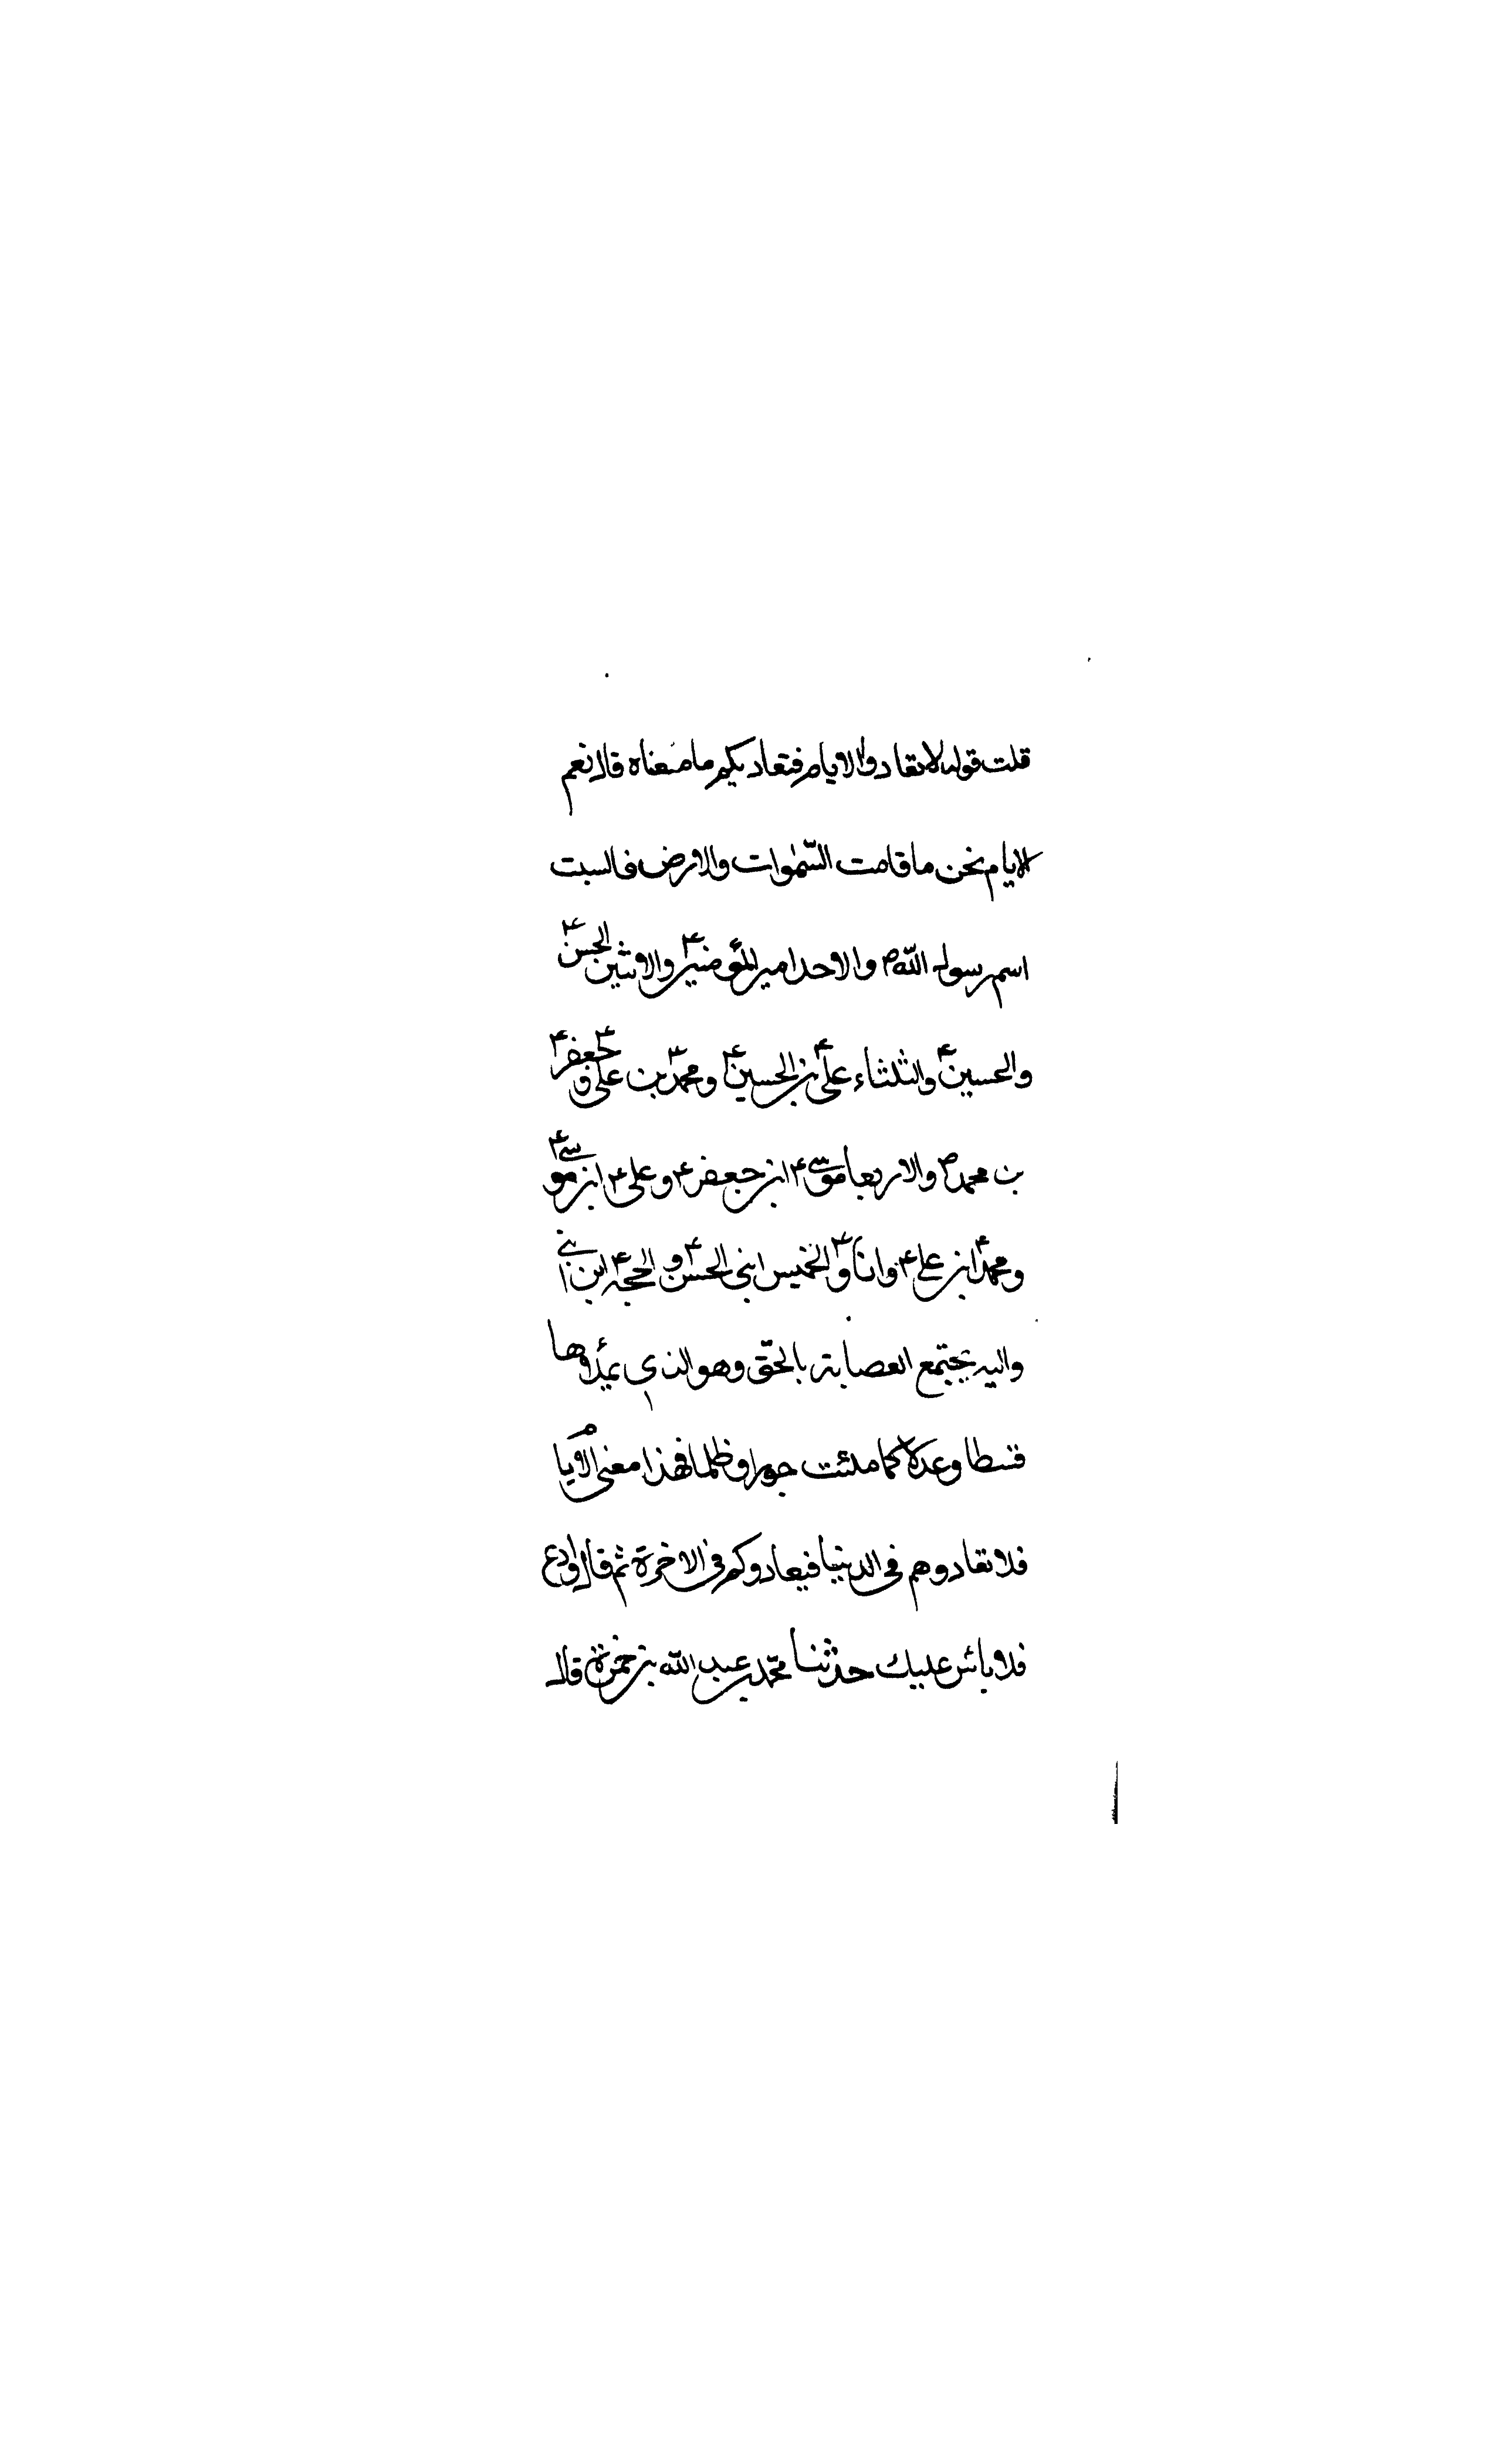 قلت قوله لا تعادوا الايام فتعاديكم ما معناه قال نعم
الايام نحن ما قامت السّمٰوات والارض فالسبت
اسم رسول اللّه ص والاحد امير المؤمنين ع والاثنين الحسن ع
والحسين ع والثلثاء علي ع بن الحسين ع ومحمّد ع بن علي و جعفر ع
بن محمد ص والاربعا موسى ع ابن جعفر ع وعلى ع ابن موسى ع
ومحمد ع ابن علي ع وانا و الخميس ابنى الحسن ع و الحجة ع ابن ابني
واليه يجتمع العصابة بالحقّ وهو الذي يملأها
قسطا وعدلا كما ملئت جورا وظلما فهذا معنى الأيام
فلا تعادوهم في الدينيا فيعادوكم في الاخرة ثم قال اودع
فلا بأس عليك حدثنا محمّد بن عبد اللّه بن حمزة قال